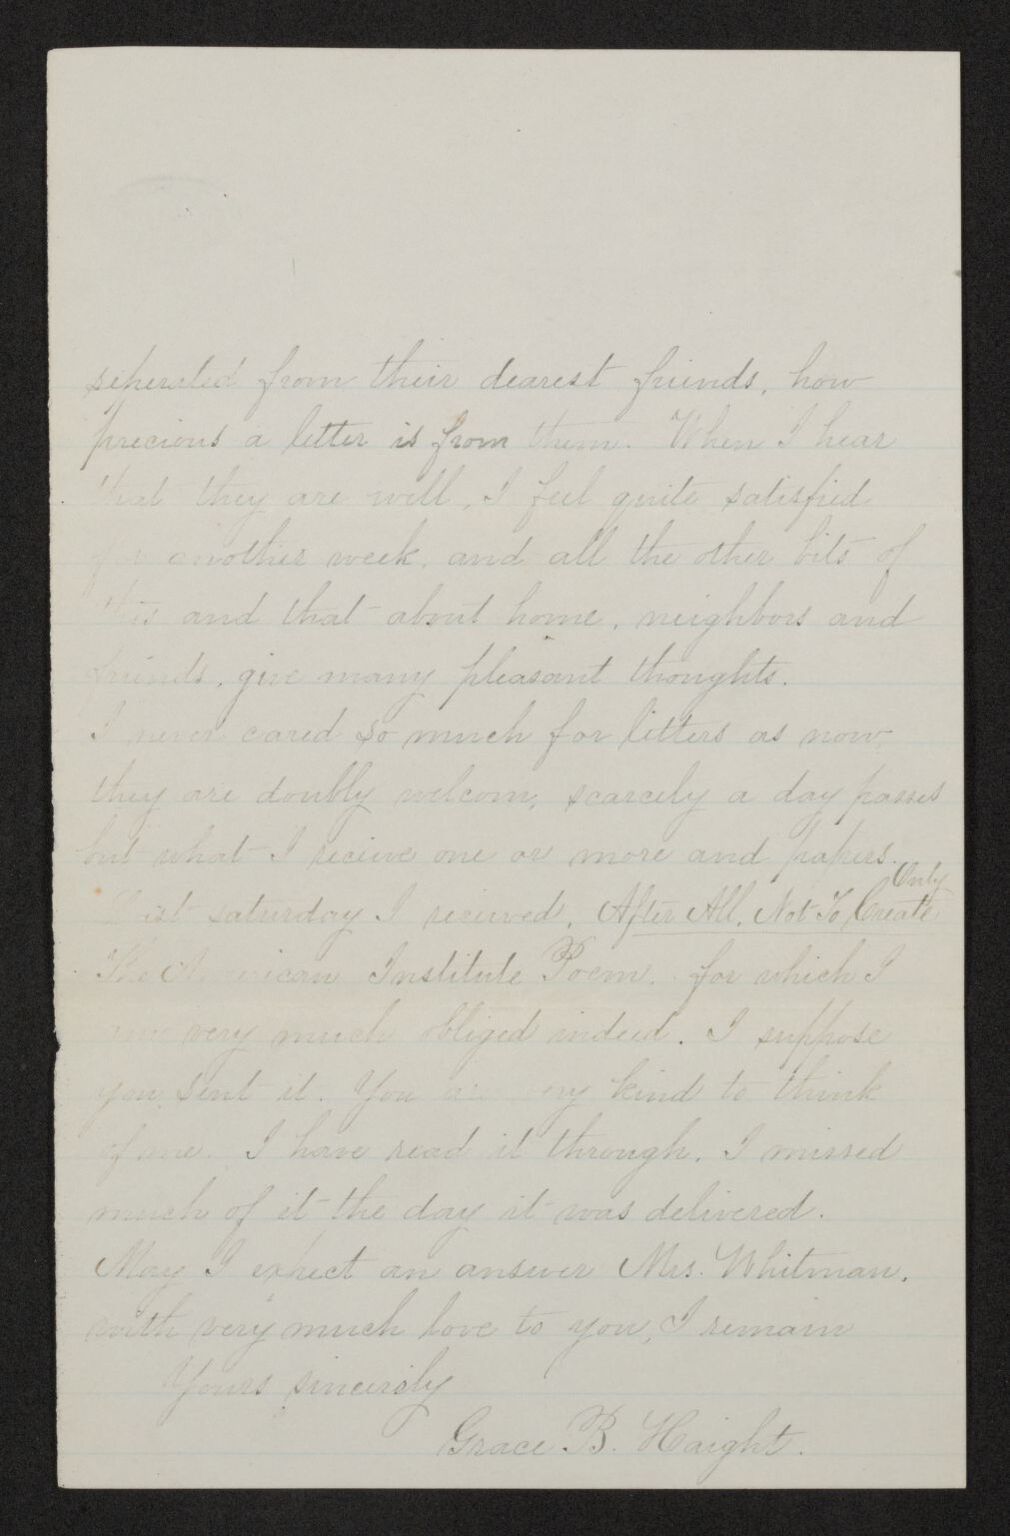 seperated from their dearest friends, how
precious a letter is from them. When I hear
that they are well, I feel quite satisfied
for another week, and all the other bits of
this and that about home, neighbors and
friends, give many pleasant thoughts.
I never cared so much for letters as now,
they are doubly welcom, scarcely a day passes
but what I receive one or more and papers.
Only
Last saturday I received, After All, Not To Create
The American Institute Poem. for which I
am very much obliged indeed. I suppose
you sent it. You are very kind to think
of me. I have read it through. I missed
much of it the day it was delivered.
May I expect an answer Mrs. Whitman.
with very much love to you, I remain
Yours sincerely
Grace B. Haight.